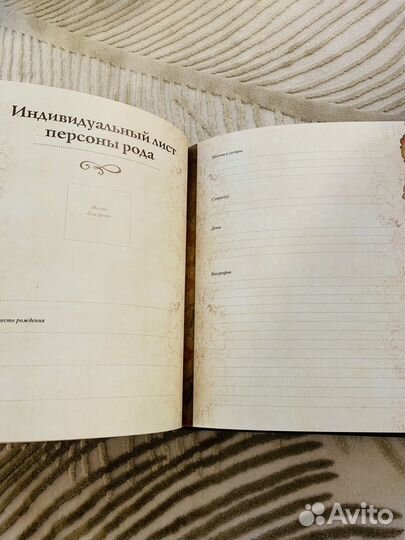 Индивидуальный лист
персоны рода
Место
для фото
место рождения
Братья и сестры
Супруг(а)
Дети
Биография
Avito